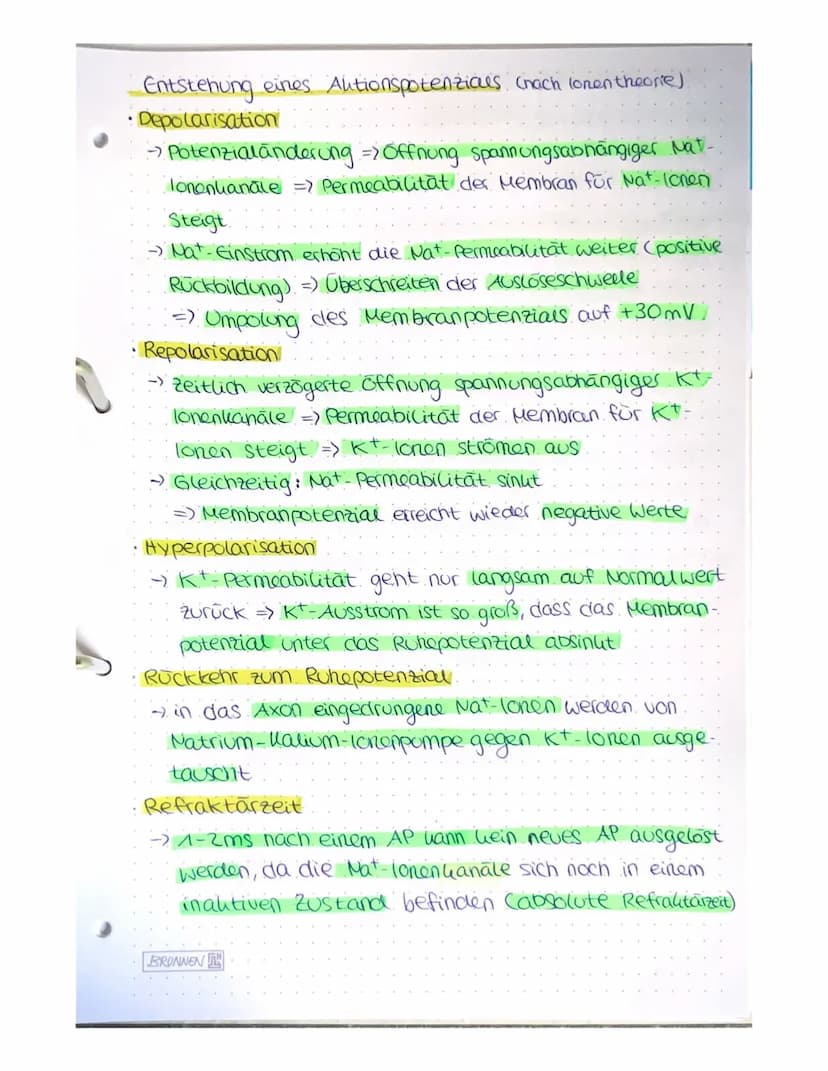 Entstehung eines Aktionspotenzials (nach Ionentheorie)
· Depolarisation
→ Potenzialänderung => Öffnung spannungsabhängiger Na⁺-
Ionenkanäle => Permeabilität der Membran für Na⁺-Ionen
steigt
→ Na⁺-Einstrom erhöht die Na⁺-Permeabilität weiter (positive
Rückbildung) => Überschreiten der Auslöseschwelle
=> Umpolung des Membranpotenzials auf +30mV
· Repolarisation
→ zeitlich verzögerte Öffnung spannungsabhängiger K⁺-
Ionenkanäle => Permeabilität der Membran für K⁺-
Ionen steigt => K⁺-Ionen strömen aus
→ Gleichzeitig: Na⁺-Permeabilität sinkt
=> Membranpotenzial erreicht wieder negative Werte
· Hyperpolarisation
→ K⁺-Permeabilität geht nur langsam auf Normalwert
zurück => K⁺-Ausstrom ist so groß, dass das Membran-
potenzial unter das Ruhepotenzial absinkt
· Rückkehr zum Ruhepotenzial
→ in das Axon eingedrungene Na⁺-Ionen werden von
Natrium-Kalium-Ionenpumpe gegen K⁺-Ionen ausge-
tauscht
· Refraktärzeit
→ 1-2ms nach einem AP kann kein neues AP ausgelöst
werden, da die Na⁺-Ionenkanäle sich noch in einem
inaktiven Zustand befinden (absolute Refraktärzeit)
BRUNNEN